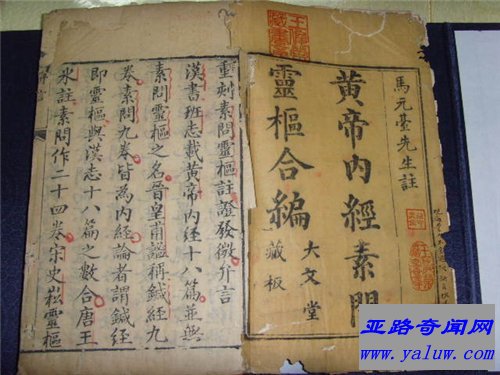 馬元臺先生註
黃帝內經素問
靈樞合編
大文堂
藏板
重刻素問靈樞註證發微介言
漢書班志載黃帝內經十八篇並無
素問靈樞之名晉皇甫謐稱鍼經九
卷素問九卷皆為內經論者謂鍼經
即靈樞與漢志十八篇之數合唐王
氷註素問作二十四卷宋史崧靈樞
亚路奇闻网
www.yaluw.com